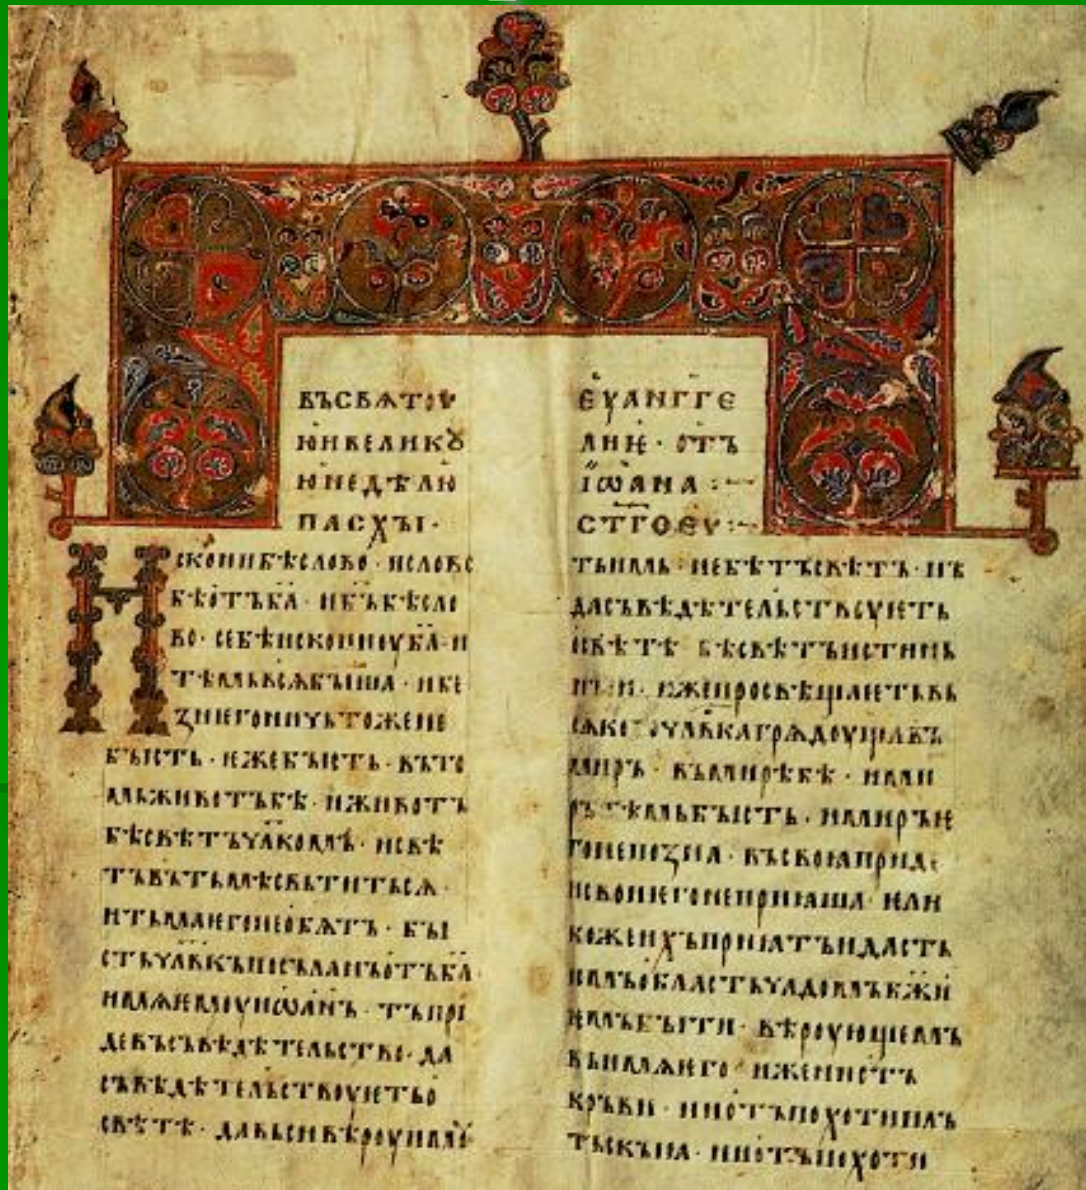 ВЪСВѦТОУ
ЮИВЕЛИКꙊ
ЮНЕДѢЛЮ
ПАСХЪІ·
ЕУАНГГЕ
ЛИѤ·ОТЪ
ІѠАНА:~
СТГОЕУ:~
ИСКОНИБѢСЛОВО·ИСЛОВО
БѢОТЪБА·ИБЪБѢСЛО
ВО·СЕБѢИСКОНИОУБА·И
ТѢМЬВСѦБЪІША·ИБЕ
ЗНѤГОНИЧЬТОЖЕНЕ
БЪІСТЬ·ИЖЕБЪІСТЬ·ВЪТО
МЬЖИВОТЪБѢ·ИЖИВОТЪ
БѢСВѢТЪЧЛКОМЪ·ИСВѢ
ТЪВЪТЬМѢСВЬТИТЬСѦ·
ИТЬМАѤГОНЕОБѦТЪ·БЪІ
СТЬЧЛВКЪПОСЪЛАНЪОТЪБА
ИМѦѤМОУИѠАНЪ·ТЪПРІ
ДЕВЪСЪВѢДѢТЕЛЬСТВО·ДА
СЪВѢДѢТЕЛЬСТВОУѤТЬО
СВѢТѢ·ДАВЬСИВѢРОУИМО
ТЬИМЬ·НЕБѢТЪСВѢТЪ·НЪ
ДАСЪВѢДѢТЕЛЬСТВОУѤТЬ
ОСВѢТѢ БѢСВѢТЪИСТИНЬ
НЪІИ·ИЖЕПРОСВѢЩАѤТЬВЬ
СѦКОГОЧЛВКАГРѦДОУЩАВЪ
МИРЪ·ВЪМИРѢБѢ·ИМИ
РЪТѢМЬБЪІСТЬ·ИМИРЪѤ
ГОНЕПОЗНА·ВЪСВОꙖПРИДЕ
ИСВОИѤГОНЕПРИꙖША·ѤЛИ
КОЖЕИХЪПРИꙖТЪИДАСТЬ
ИМЪОБЛАСТЬЧАДОМЪБЖИ
ѤМЪБЪІТИ·ВѢРОУЮЩЕМЪ
ВЪИМѦѤГО·ИЖЕНИОТЪ
КРЪВИ·НИОТЪПОХОТИПЛЪ
ТЬСКЪІꙖ·НИОТЪПОХОТИ